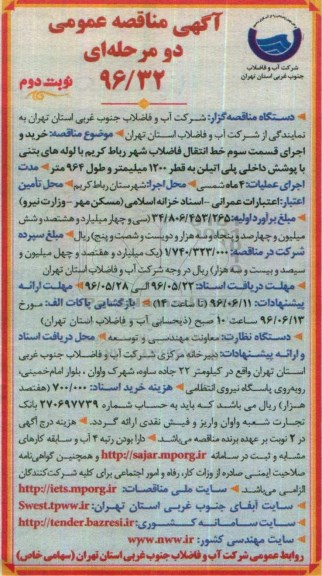 آگهی مناقصه عمومی
دو مرحله‌ای
۹۶/۳۲
نوبت دوم
شرکت آب و فاضلاب
جنوب غربی استان تهران
دستگاه مناقصه گزار: شرکت آب و فاضلاب جنوب غربی استان تهران به
نمایندگی از شرکت آب و فاضلاب استان تهران موضوع مناقصه: خرید و
اجرای قسمت سوم خط انتقال فاضلاب شهر رباط کریم با لوله های بتنی
با پوشش داخلی پلی اتیلن به قطر ۱۲۰۰ میلیمتر و طول ۹۶۴ متر مدت
اجرای عملیات: ۴ ماه شمسی محل اجرا: شهرستان رباط کریم محل تأمین
اعتبار: اعتبارات عمرانی – اسناد خزانه اسلامی (مسکن مهر – وزارت نیرو)
مبلغ برآورد اولیه: ۳۴/۸۰۶/۴۵۳/۲۶۵ (سی و چهار میلیارد و هشتصد و شش
میلیون و چهارصد و پنجاه و سه هزار و دویست و شصت و پنج) ریال مبلغ سپرده
شرکت در مناقصه: ۱/۷۴۰/۳۲۳/۰۰۰ (یک میلیارد و هفتصد و چهل میلیون و
سیصد و بیست و سه هزار) ریال در وجه شرکت آب و فاضلاب استان تهران
مهلت دریافت اسناد: ۹۶/۰۵/۲۲ الی ۹۶/۰۵/۲۸ مهلت ارائه
پیشنهادات: ۹۶/۰۶/۱۱ (تا ساعت ۱۴) بازگشایی پاکات الف: مورخ
۹۶/۰۶/۱۳ ساعت ۱۰ صبح (ذیحسابی آب و فاضلاب استان تهران)
دستگاه نظارت: معاونت مهندسی و توسعه محل دریافت اسناد
و ارائه پیشنهادات: دبیرخانه مرکزی شرکت آب و فاضلاب جنوب غربی
استان تهران واقع در کیلومتر ۲۲ جاده ساوه، شهرک واوان، بلوار امام خمینی،
روبه‌روی پاسگاه نیروی انتظامی هزینه خرید اسناد: ۷۰۰/۰۰۰ (هفتصد
هزار) ریال می باشد که باید به حساب شماره ۲۷۰۶۹۷۷۳۹ بانک
تجارت شعبه واوان واریز و فیش نقدی ارائه گردد. هزینه درج آگهی
در ۲ نوبت بر عهده برنده مناقصه می‌باشد. دارا بودن رتبه ۴ آب و سابقه کارهای
مشابه و ثبت در سامانه http://sajar.mporg.ir و همچنین گواهی‌نامه
صلاحیت ایمنی صادره از وزارت کار، رفاه و امور اجتماعی برای کلیه شرکت‌کنندگان
الزامی می‌باشد. سایت ملی مناقصات: http://iets.mporg.ir
سایت آبفای جنوب غربی استان تهران: Swest.tpww.ir
سایت سامانه کشوری: http://tender.bazresi.ir
سایت مهندسی کشور: www.nww.ir
روابط عمومی شرکت آب و فاضلاب جنوب غربی استان تهران (سهامی خاص)